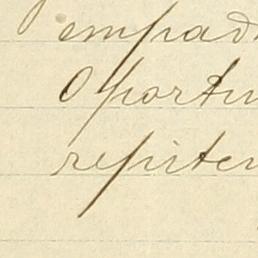 empad
Oportu
repiten